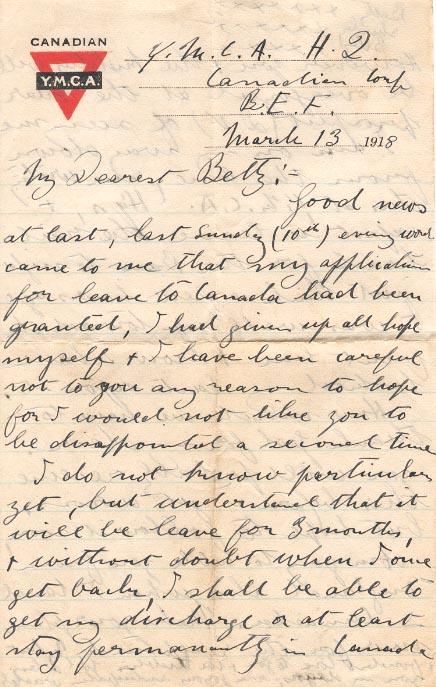 CANADIAN
Y.M.C.A.
Y.M.C.A. H.Q.
Canadian Corp
B.E.F.
March 13 1918
My Dearest Betty:-
Good news
at last, last Sunday (10th) evening word
came to me that my application
for leave to Canada had been
granted, I had given up all hope
myself & I have been careful
not to you any reason to hope
for I would not like you to
be disappointed a second time
I do not know particulars
yet, but understand that it
will be leave for 3 months,
& without doubt when I once
get back, I shall be able to
get my discharge or at least
stay permanently in Canada